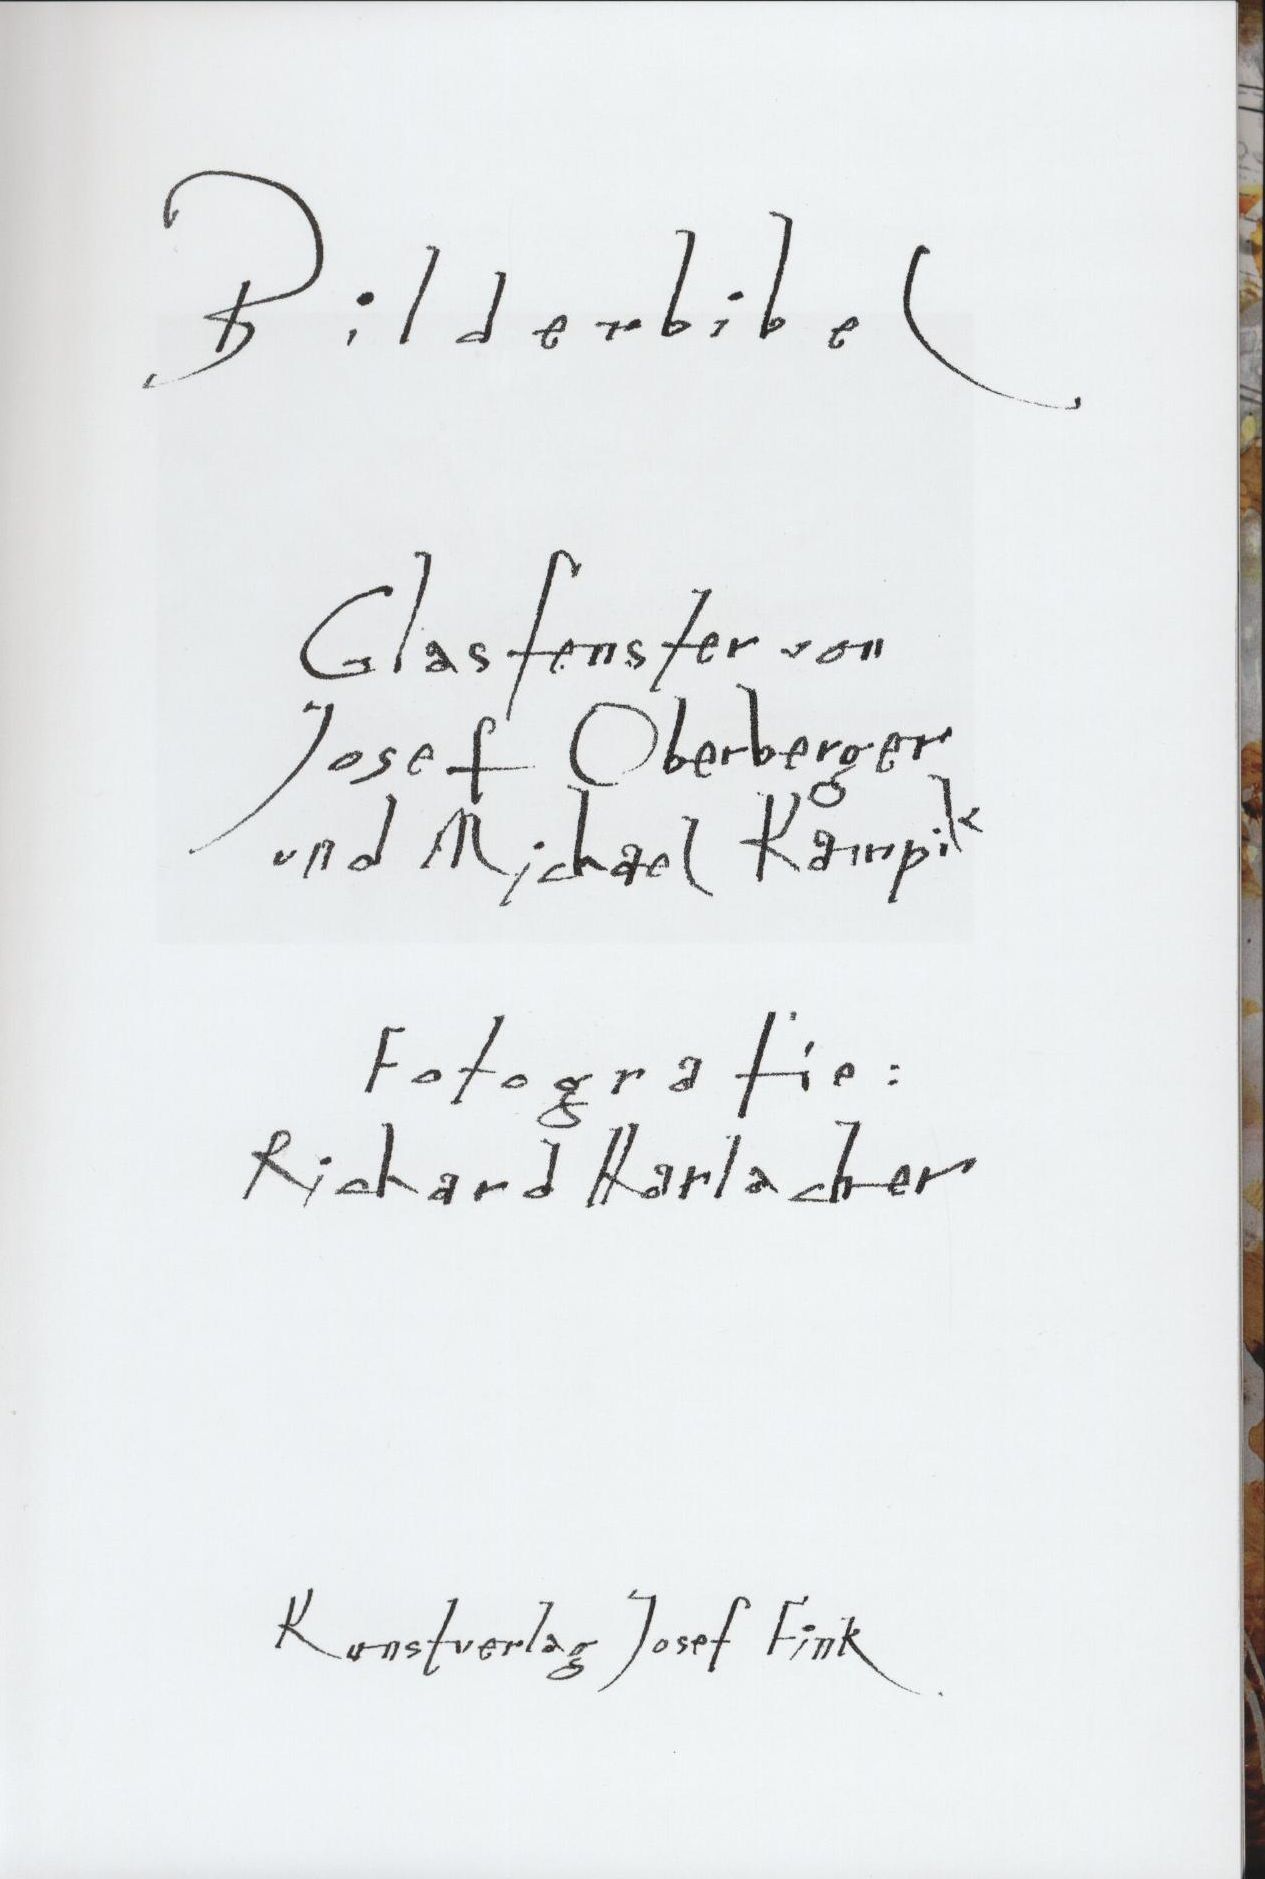 Bilderbibel
Glasfenster von
Josef Oberberger
und Michael Kampik
Fotografie:
Richard Harlacher
Kunstverlag Josef Fink